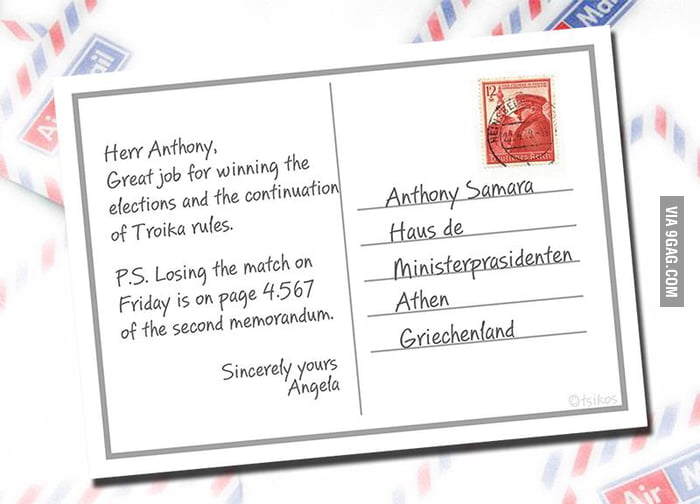 Herr Anthony,
Great job for winning the
elections and the continuation
of Troika rules.
P.S. Losing the match on
Friday is on page 4.567
of the second memorandum.
Sincerely yours
Angela
12
Deutsches Reich
Anthony Samara
Haus de
Ministerprasidenten
Athen
Griechenland
©tsikos
VIA 9GAG.COM
Air Mail